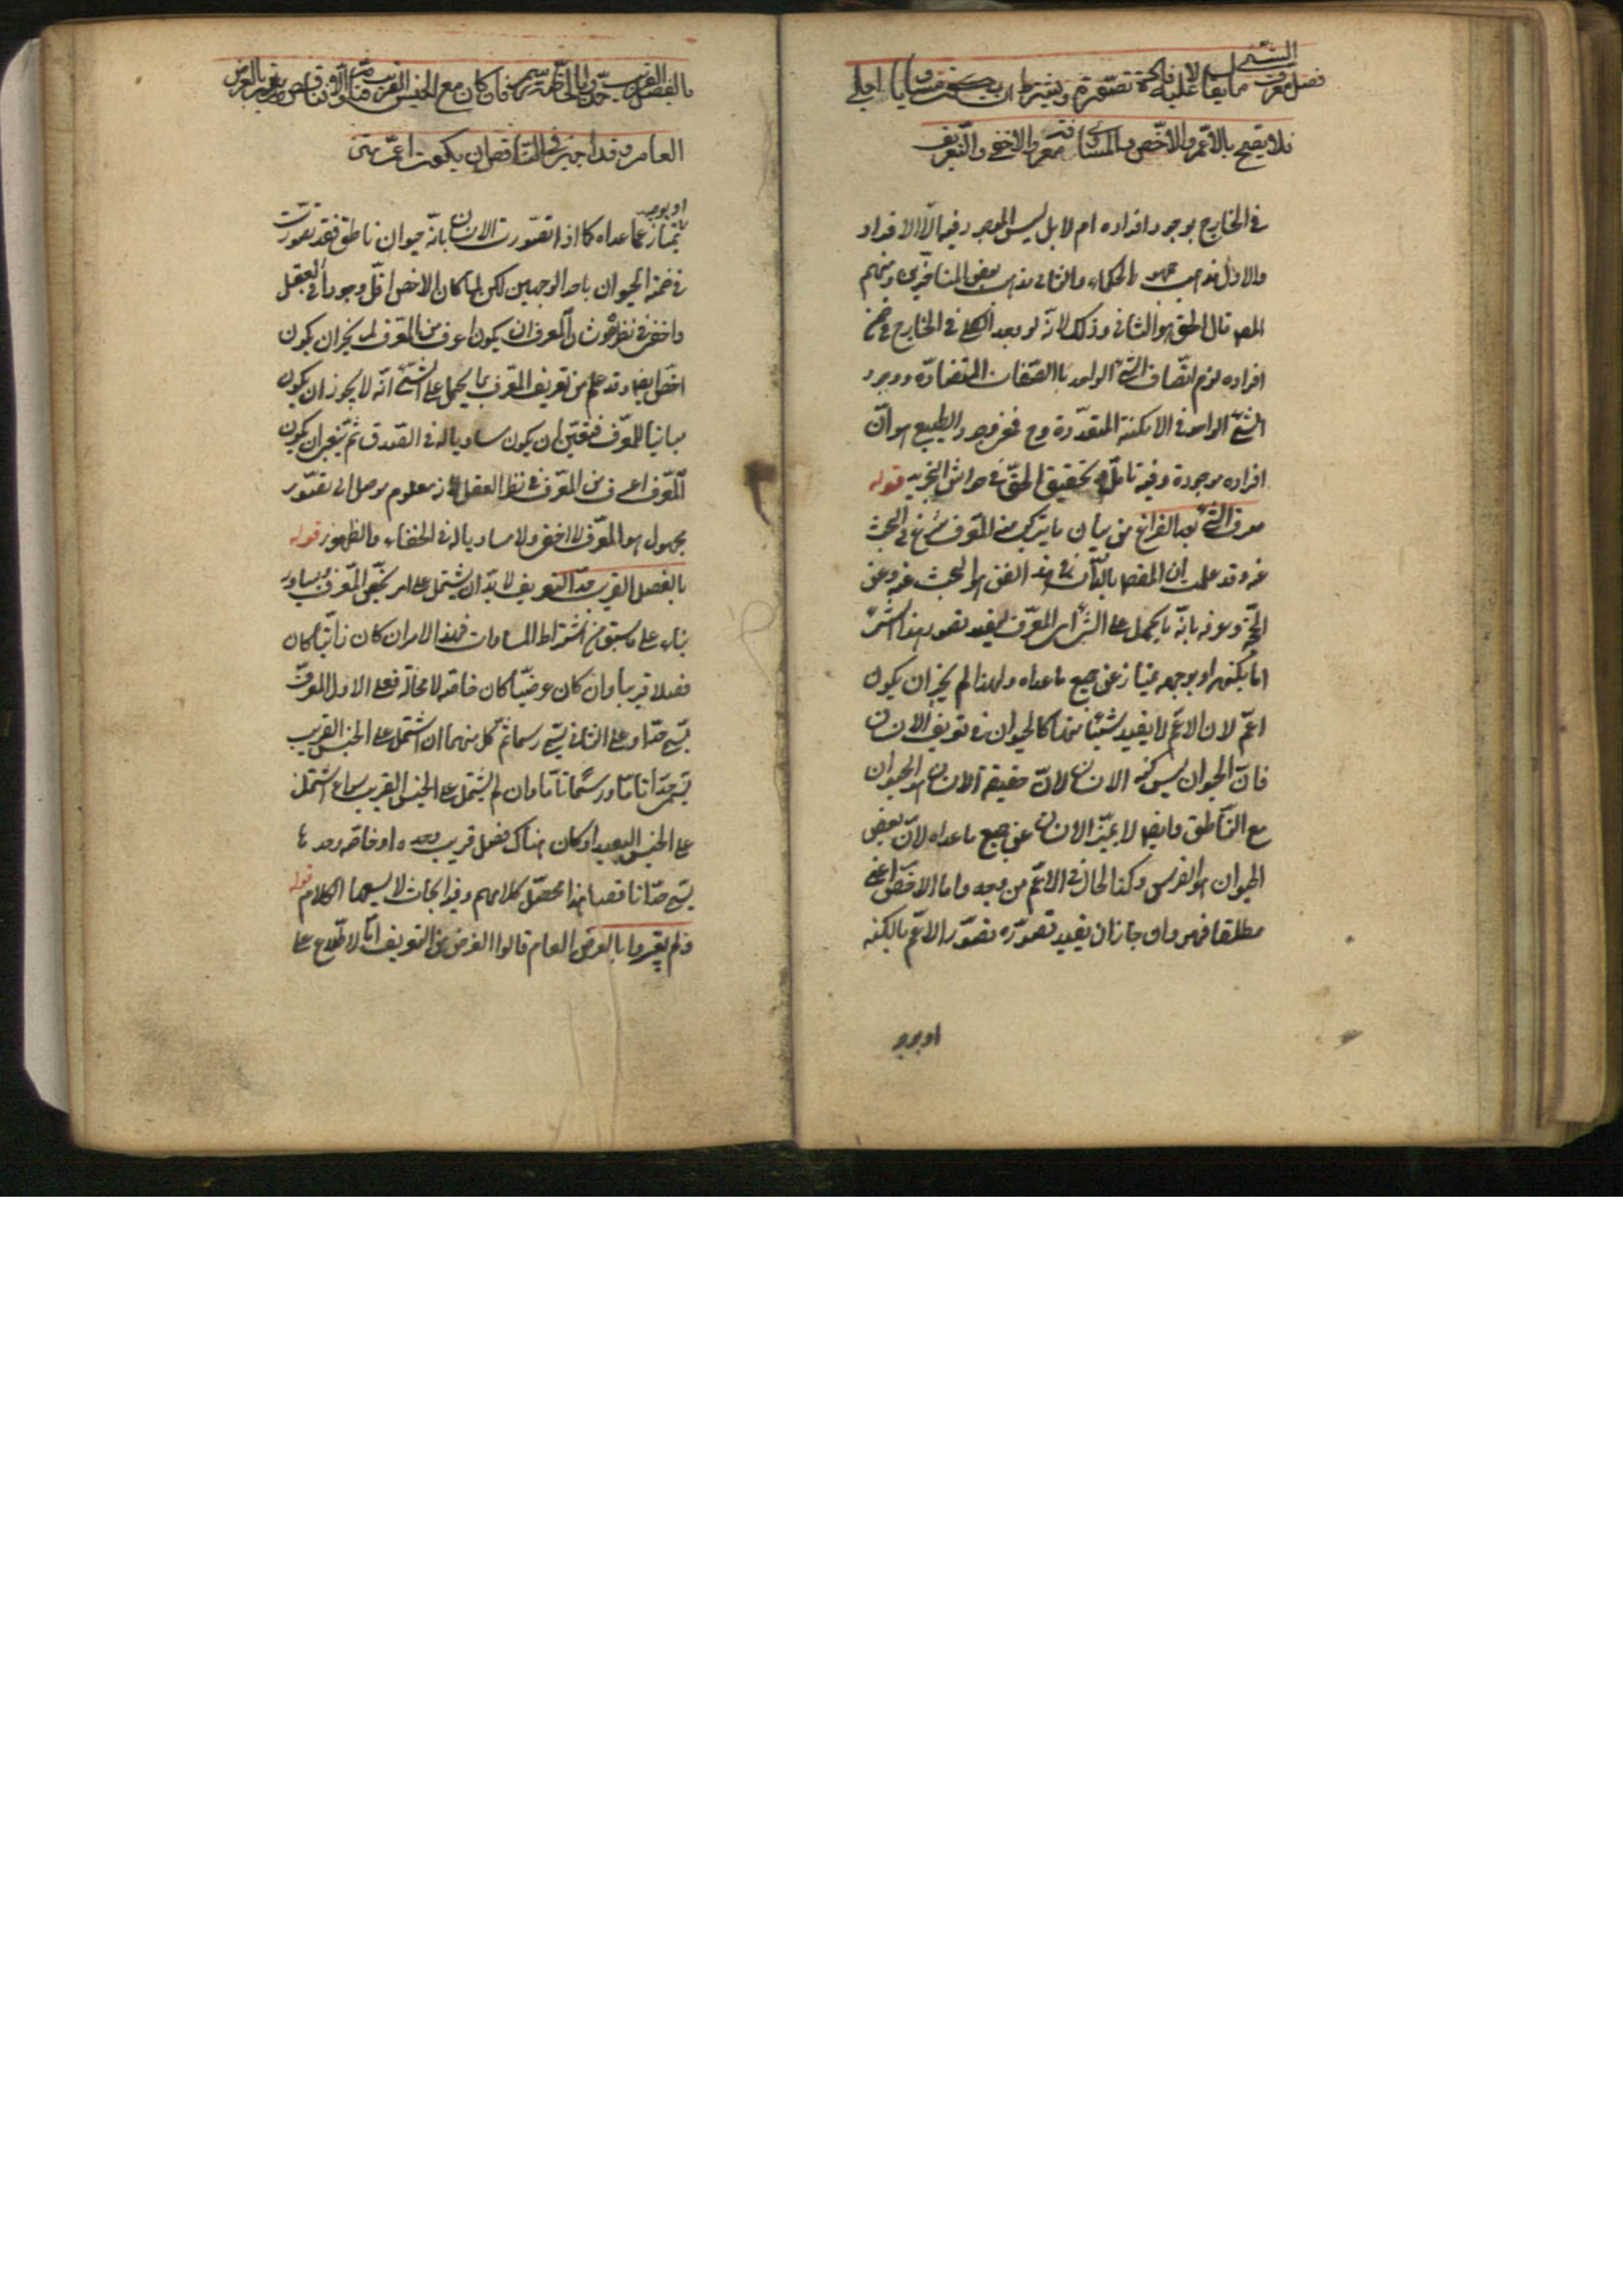 فصل معرف الشئ ما يقال عليه لافادة تصوره ويشترط ان يكون مساويا اجلى
فلا يصح بالاعم والاخص والمساوى معرفة والاخفى والتعريف
فى الخارج بوجود افراده ام لا بل ليس الموجود فيه الا الافراد
والاول مذهب جمهور الحكماء والثانى مذهب بعض المتاخرين ومنهم
المص قال الحق هو الثانى وذلك لانه لو وجد الكلى فى الخارج فى ضمن
افراده لزم اتصاف الشئ الواحد بالصفات المتضادة ووجود
الشئ الواحد فى الامكنة المتعددة وح فمعنى وجود الطبيعى هو ان
افراده موجودة وفيه تامل وتحقيق الحق فى حواشى التجريد قوله
معرف الشئ بعد الفراغ من بيان ما يتركب منه المعرف شرع فى البحث
عنه وقد علمت ان المقصود بالذات فى هذا الفن هو البحث عنه وعن
الحجة وعرفه بانه ما يحمل على الشئ اى المعرف ليفيد تصور هذا الشئ
اما بكنهه او بوجه يمتاز عن جميع ما عداه ولهذا لم يجز ان يكون
اعم لان الاعم لا يفيد شيئا منهما كالحيوان فى تعريف الانسان
فان الحيوان ليس كنه الانسان لان حقيقة الانسان هو الحيوان
مع الناطق وايضا لا يميز الانسان عن جميع ما عداه لان بعض
الحيوان هو الفرس وكذا الحال فى الاعم من وجه واما الاخص اعنى
مطلقا فهو وان جاز ان يفيد تصوره تصور الاعم بالكنه
او بوجه
بالفصل القريب حد وبالخاصة رسم فان كان مع الجنس القريب فتام والا فناقص ولم يعتبروا بالعرض
العام وقد اجيز فى الناقص ان يكون اعم
او بوجه يمتاز عما عداه كما اذا تصورت الانسان بانه حيوان ناطق فقد تصورت
فى ضمنه الحيوان باحد الوجهين لكن لما كان الاخص اقل وجودا فى العقل
واخفى فى نظره وشان المعرف ان يكون اعرف من المعرف لم يجز ان يكون
اخص ايضا وقد علم من تعريف المعرف بما يحمل على الشئ انه لا يجوز ان يكون
مباينا للمعرف فتعين ان يكون مساويا له فى الصدق ثم ينبغى ان يكون
المعرف اعرف من المعرف فى نظر العقل لانه معلوم موصل الى تصور
مجهول هو المعرف لا اخفى ولا مساويا له فى الخفاء والظهور قوله
بالفصل القريب حد التعريف لا بد ان يشتمل على امر يخص المعرف ويساويه
بناء على ما سبق من اشتراط المساوات فهذا الامر ان كان ذاتيا كان
فصلا قريبا وان كان عرضيا كان خاصة لا محالة فعلى الاول المعرف
يسمى حدا وعلى الثانى يسمى رسما ثم كل منهما ان اشتمل على الجنس القريب
يسمى حدا تاما ورسما تاما وان لم يشتمل على الجنس القريب سواء اشتمل
على الجنس البعيد او كان هناك فصل قريب وحده او خاصة وحدها
يسمى حدا ناقصا هذا محصل كلامهم وفيه ابحاث لا يسعها الكلام قوله
ولم يعتبروا بالعرض العام قالوا الغرض من التعريف اما الاطلاع على